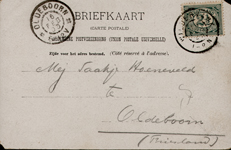 OLDEBOORN
BRIEFKAART
(CARTE POSTALE)
ALGEMEENE POSTVEREENIGING (UNION POSTALE UNIVERSELLE)
Zijde voor het adres bestemd. (Côté réservé à l'adresse).
Mej Saakje Hoeneveld
te
Oldeboorn
(Friesland)